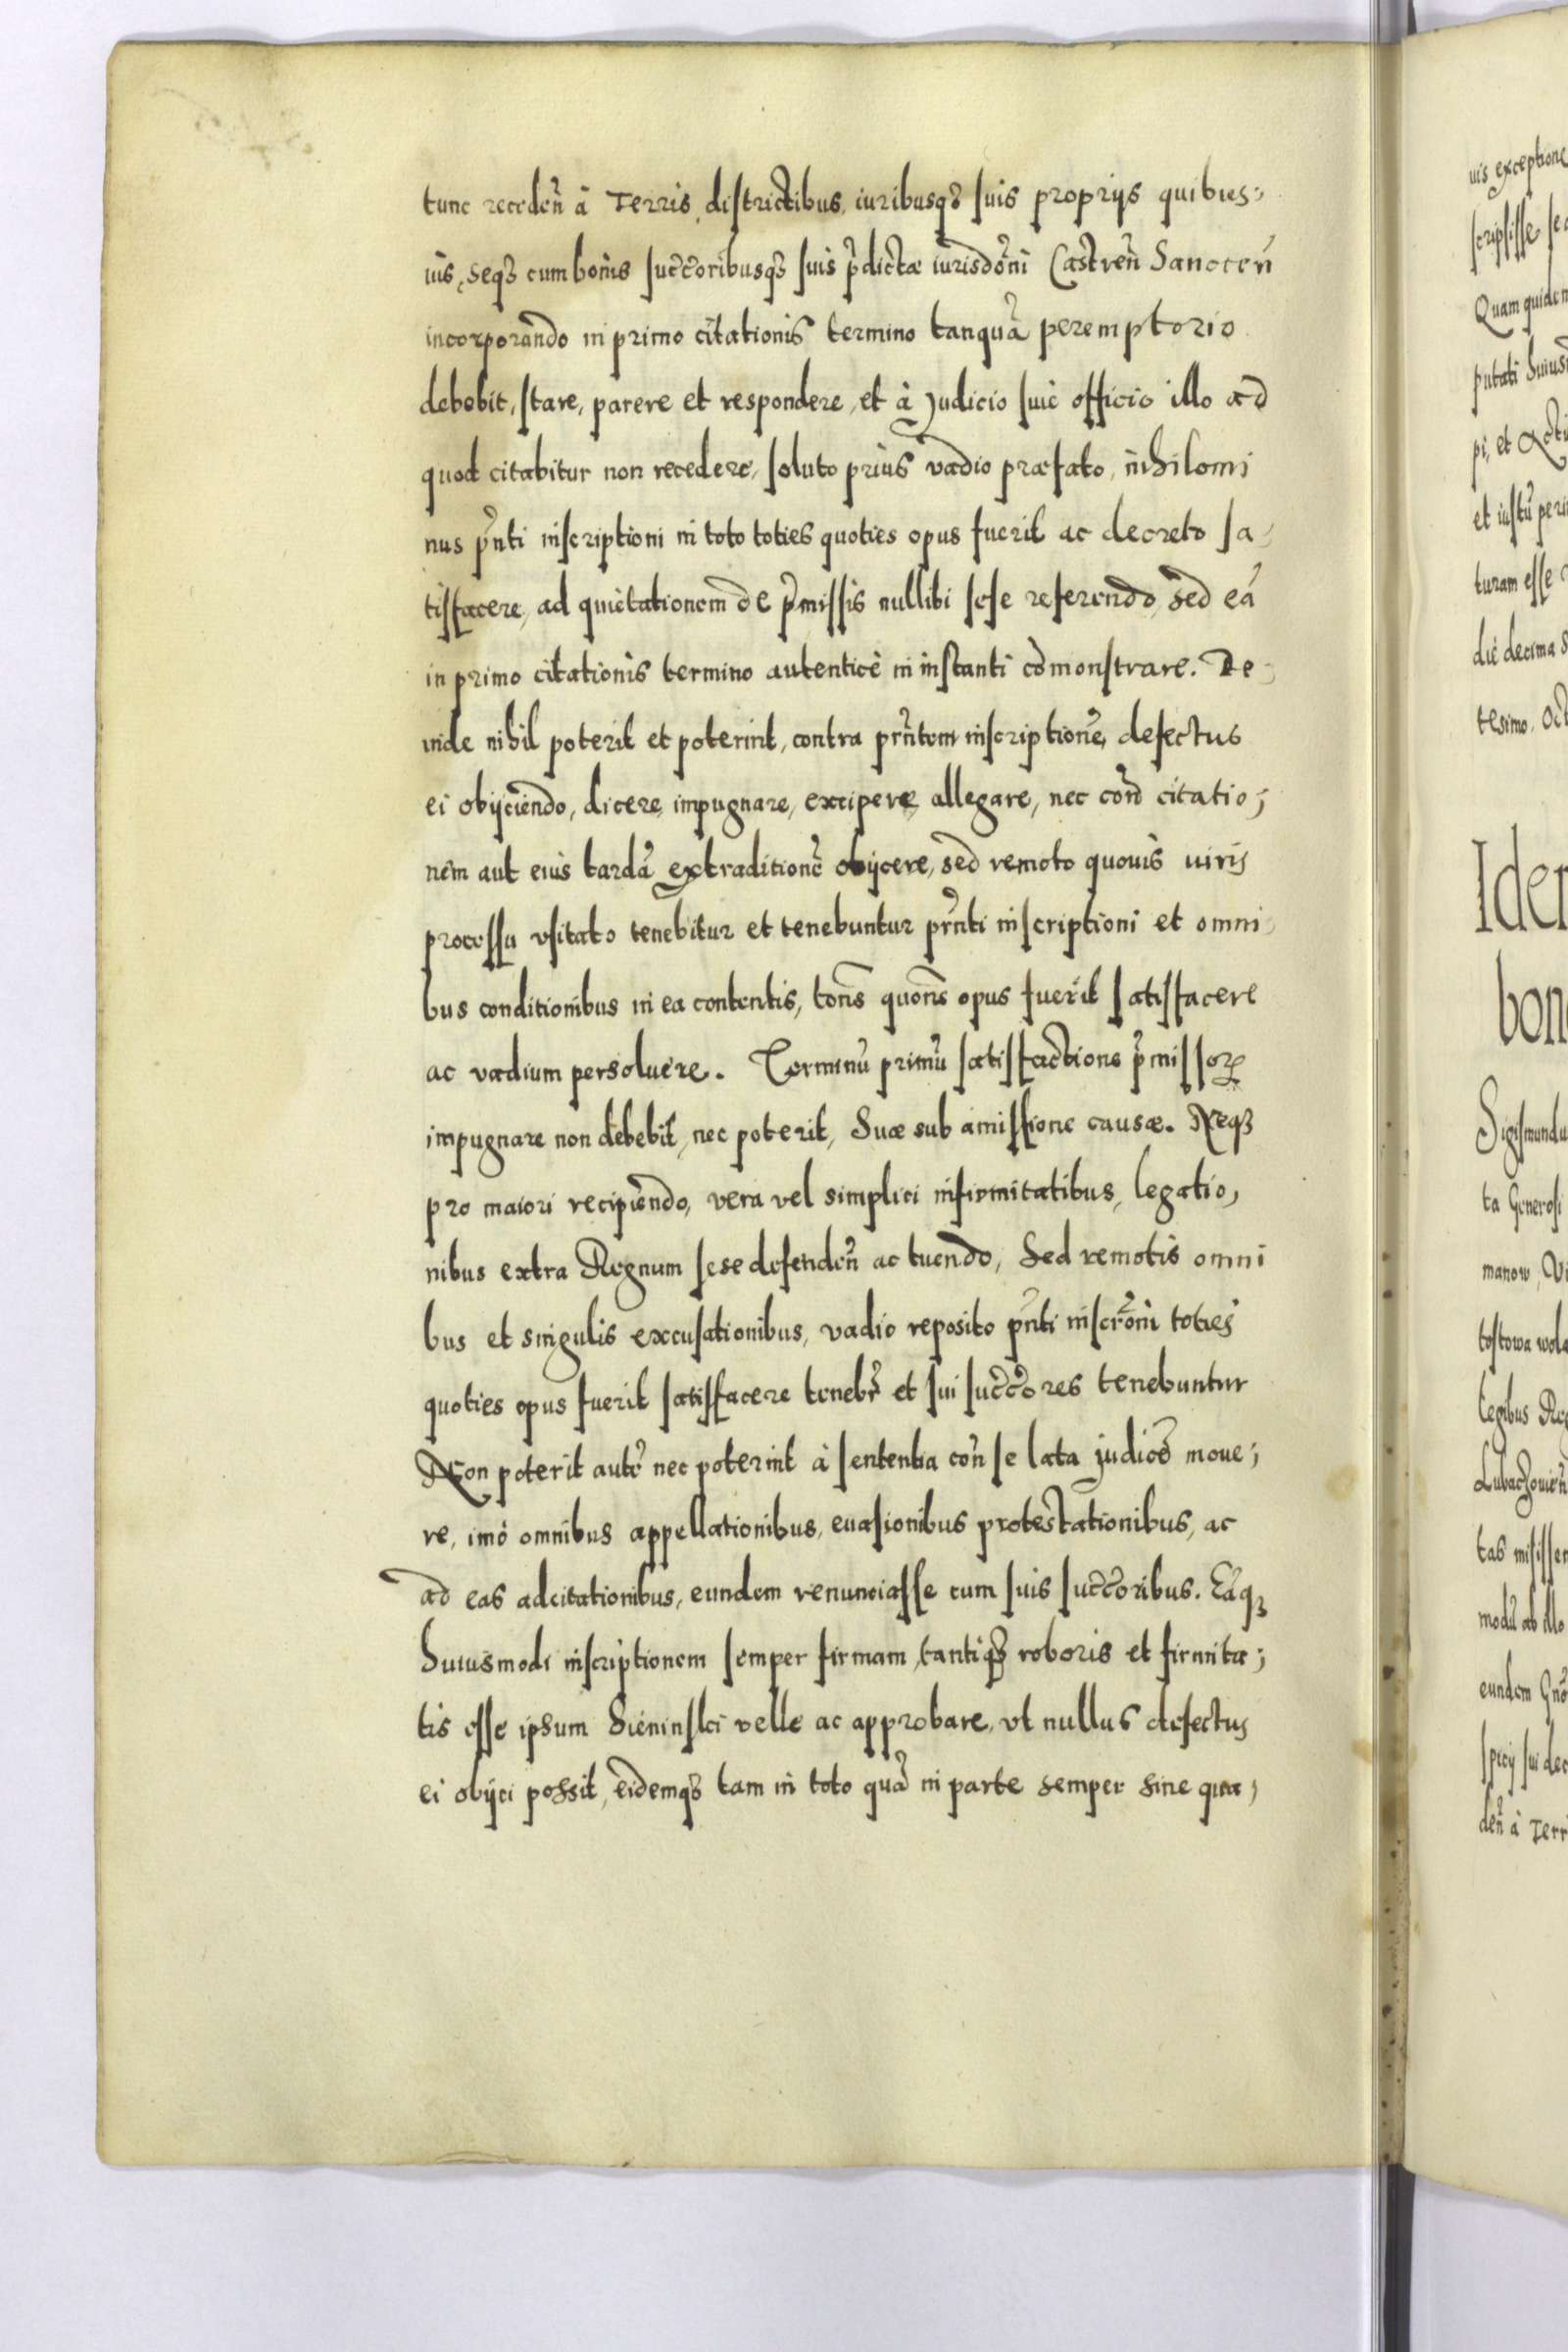 tunc recedeñ à Terris, districtibus, iuribusqȝ suis proprijs quibus-
uis, seqȝ cum bonis succ̃oribusqȝ suis p̃dictæ iurisdõni Castreñ Sanoceñ
incorporando in primo citationis termino tanquã peremptorio
debebit, stare, parere et respondere, et à judicio siuè officio illo ad
quod citabitur non recedere, soluto prius vadio præfato, nihilomi
nus p̃nti inscriptioni in toto toties quoties opus fuerit ac decreto sa-
tisfacere, ad quietationem de p̃missis nullibi sese referendo, sed eã
in primo citationis termino autenticè in instanti cõmonstrare. De-
inde nihil poterit et poterint, contra prñtem inscriptionẽ, defectus
ei obijciendo, dicere, impugnare, excipere, allegare, nec corã citatio-
nem aut eius tardã extraditionẽ obijcere, sed remoto quouis iuris
processu vsitato tenebitur et tenebuntur prñti inscriptioni et omni-
bus conditionibus in ea contentis, tons̃ quons̃ opus fuerit satisfacere
ac vadium persoluere. Terminũ primũ satisfactione p̃missorꝝ
impugnare non debebit, nec poterit, suæ sub amissione causæ. Neqȝ
pro maiori recipiendo, vera vel simplici infirmitatibus, legatio-
nibus extra Regnum sese defendeñ ac tuendo, Sed remotis omni
bus et singulis excusationibus, vadio reposito p̃nti inscrõni toties
quoties opus fuerit satisfacere tenebr̃ et sui succ̃ores tenebuntur
Non poterit autẽ nec poterint à sententia coñ se lata judicẽ moue-
re, imò omnibus appellationibus, euasionibus protestationibus, ac
ad eas adcitationibus, eundem renunciasse cum suis succ̃oribus. Eãqȝ
huiusmodi inscriptionem semper firmam, tantiqȝ roboris et firmita-
tis esse ipsum Sieninsci velle ac approbare, vt nullus defectus
ei obijci possit, eidemqȝ tam in toto quã in parte semper sine qua-
uis exceptione
Quam quidem
putati huius
pi, et Acti
et iustũ
turam esse
die decima
tesimo, Oct
Idem
bono
Sigismundu
ta Generosi
manow
tostowa wola
legibus Reg
Lubaczouień
tas misisse
modũ ab illo
eundem Gnõ
deñ à Terr